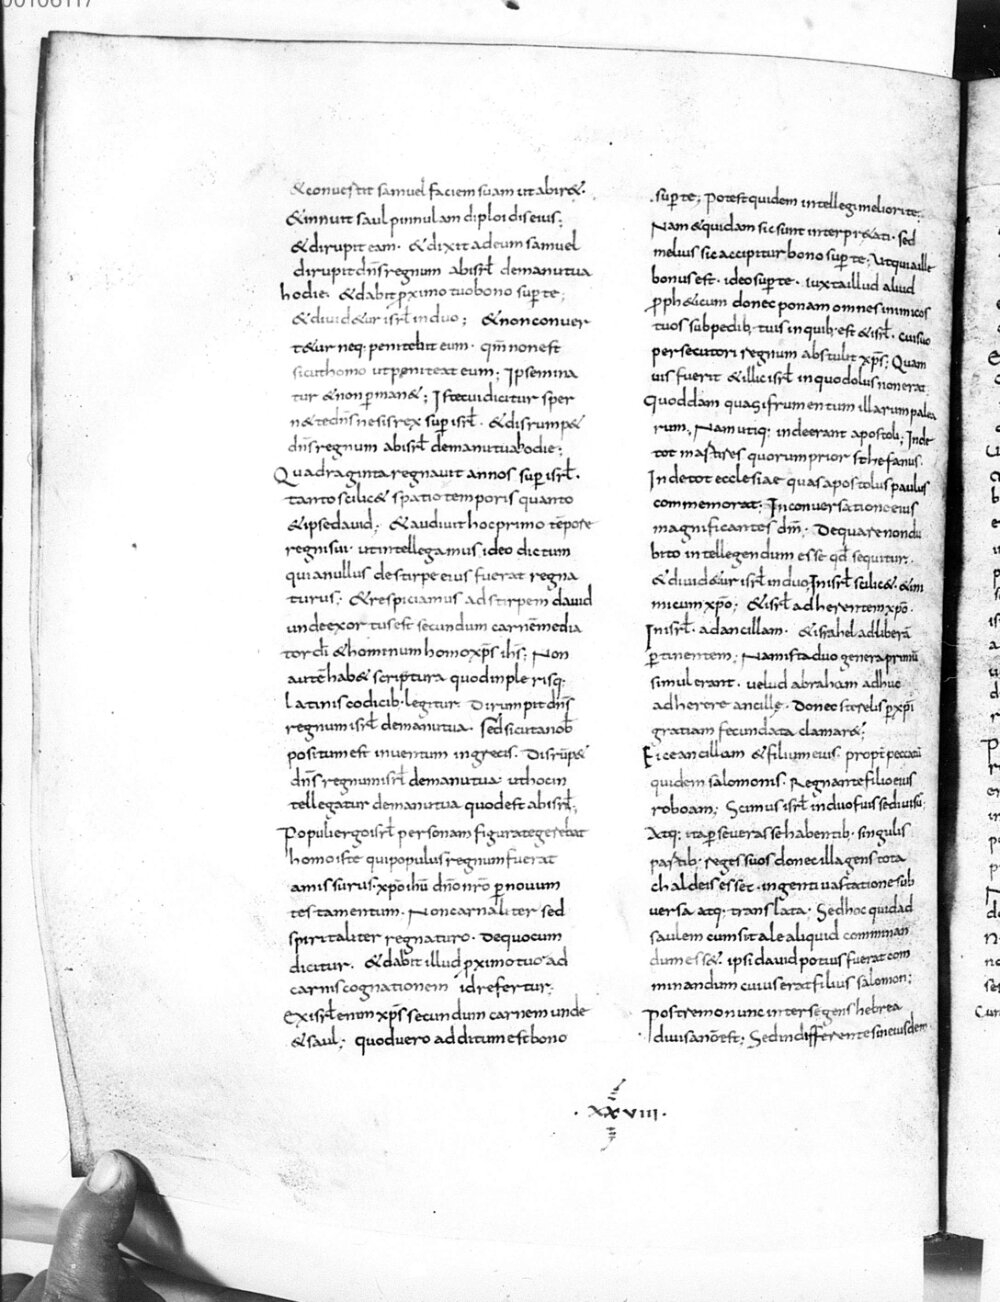 00106117
& conuestit samuel faciem suam ut abir&.
& innuit saul pinnulam diploidis eius;
& dirupit eam. & dixit ad eum samuel
dirupit dn̄s regnum ab isrl̄ de manu tua
hodie. & dabit p̲ximo tuo bono sup̲ te;
& diuid&ur isrl̄ in duo; & non conuer
t&ur neq; penitebit eum. qm̄ non est
sicut homo ut peniteat eum; Ipse mina
tur & non p̲man&; Iste cui dicitur sper
n& te dn̄s ne sis rex sup̲ isrl̄. & disrump&
dn̄s regnum ab isrl̄ de manu tua hodie;
Quadraginta regnauit annos sup̲ isrl̄.
tanto scilic& spatio temporis quanto
& ipse dauid; & audiuit hoc primo tēpore
regni sui. ut intellegamus ideo dictum
quia nullus de stirpe eius fuerat regna
turus; & respiciamus ad stirpem dauid
unde exortus est secundum carnē media
tor dī & hominum homo xp̄s ih̄s; Non
autē hab& scriptura quod in plerisq;
latinis codicib; legitur. Dirumpit dn̄s
regnum isrl̄ de manu tua. sed sicut a nob̄
positum est inuentum in grecis. Disrūp&
dn̄s regnum isrl̄ de manu tua. ut hoc in
tellegatur de manu tua quod est ab isrl̄;
Populi ergo isrl̄ personam figurate gerebat
homo iste qui populus regnum fuerat
amissurus. xp̄o ih̄u dn̄o nr̄o p̲ nouum
testamentum. Non carnaliter sed
spiritaliter regnaturo. De quo cum
dicitur. & dabit illud p̲ximo tuo ad
carnis cognationem id refertur;
Ex isrl̄ enim xp̄s secundum carnem unde
& saul; quod uero additum est bono
sup̲ te; Potest quidem intellegi meliori te;
Nam & quidam sic sunt interpr&ati. sed
melius sic accipitur bono sup̲ te; Ut quia ille
bonus est. ideo sup̲ te. iuxta illud aliud
p̲ph&icum donec ponam omnes inimicos
tuos sub pedib; tuis in quib; est & isrl̄. cui suo
persecutori regnum abstulit xp̄s; Quam
uis fuerit & illic isrl̄ in quo dolus non erat
quoddam quasi frumentum illarum palea
rum; Nam utiq; inde erant apostoli; Inde
tot martires quorum prior sthefanus.
Inde tot ecclesiae quas apostolus paulus
commemorat; In conuersatione eius
magnificantes dm̄. De qua re non du
bito intellegendum esse qd̄ sequitur.
& diuid&ur isrl̄ in duo; In isrl̄ scilic& inimi
micum xp̄o; & isrl̄ adherentem xp̄o.
In isrl̄ ad ancillam. & israhel ad liberā
p̲tinentem; Nam ista duo genera primū
simul erant. uelud abraham adhuc
adherere ancille. Donec sterelis p̲ xp̄i
gratiam fecundata clamar&;
Eice ancillam & filium eius. propt peccatū
quidem salomonis. Regnante filio eius
roboam; Scimus isrl̄ in duo fuisse diuisū;
Atq; ita p̲seuerasse habentib; singulis
partib; reges suos donec illa gens tota
chaldeis esset. ingenti uastatione sub
uersa atq; translata; Sed hoc quid ad
saulem cum si tale aliquid comminan
dum ess&. ipsi dauid potius fuerat com
minandum cuius erat filius salomon;
Postremo nunc inter se gens hebrea
diuisa nō est; Sed indifferentes in eiusdem
. XXVIII .